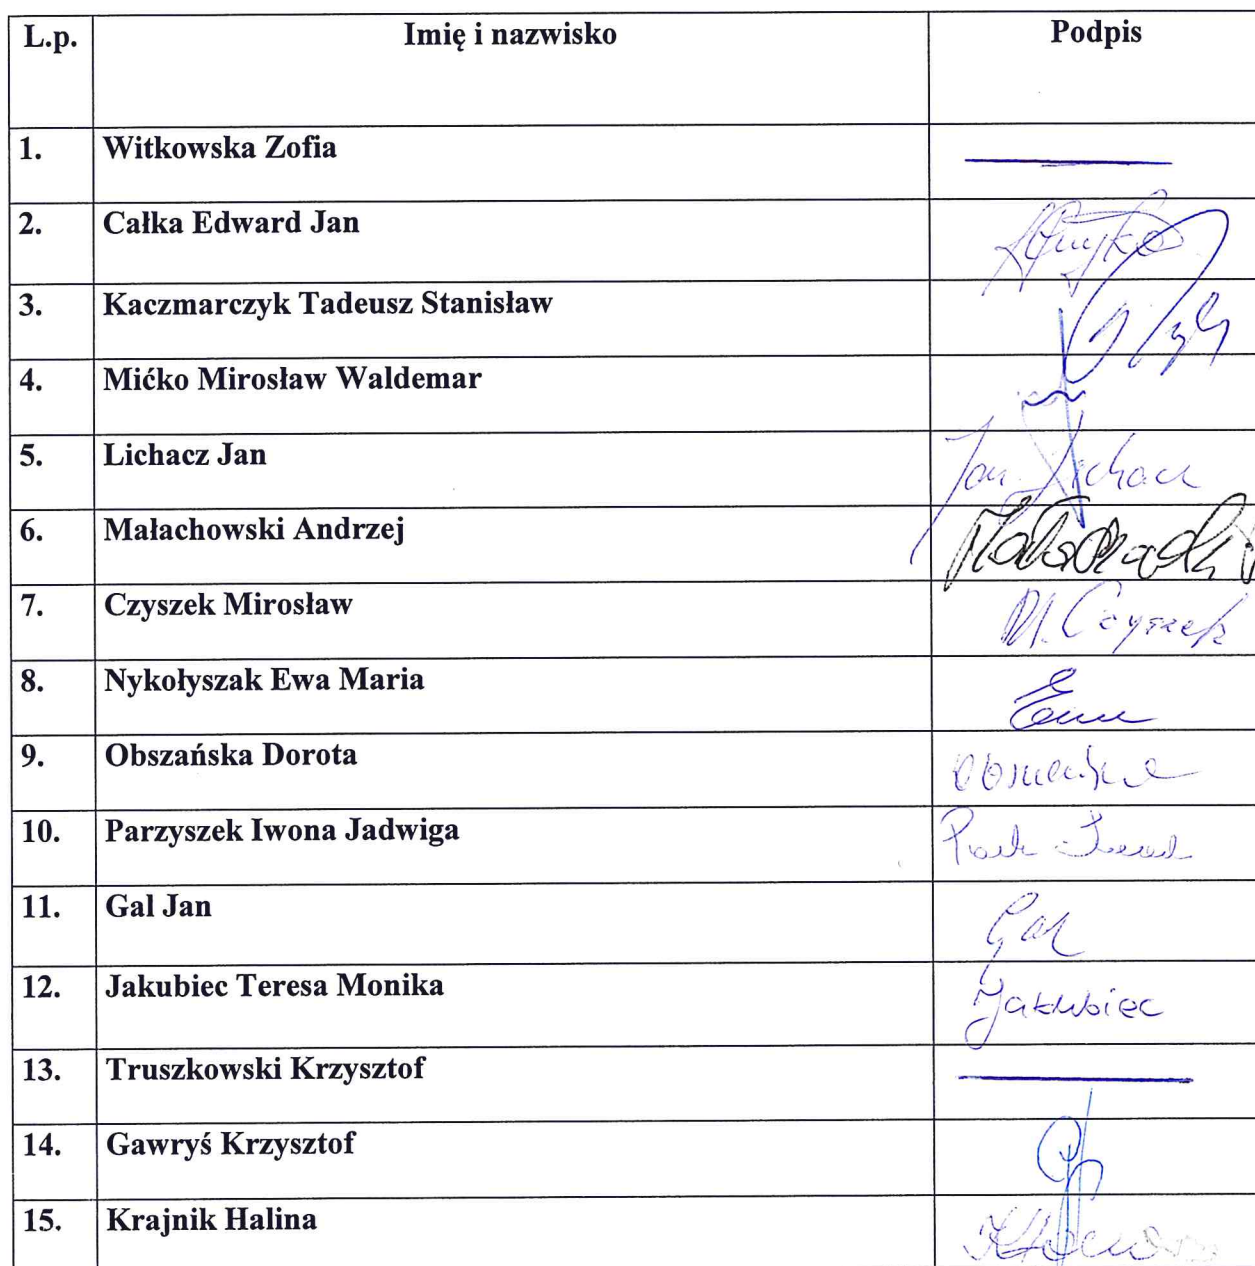 L.p. Imię i nazwisko Podpis
1. Witkowska Zofia
2. Całka Edward Jan
3. Kaczmarczyk Tadeusz Stanisław
4. Mićko Mirosław Waldemar
5. Lichacz Jan Jan Lichacz
6. Małachowski Andrzej
7. Czyszek Mirosław M. Czyszek
8. Nykołyszak Ewa Maria
9. Obszańska Dorota
10. Parzyszek Iwona Jadwiga
11. Gal Jan Gal
12. Jakubiec Teresa Monika Jakubiec
13. Truszkowski Krzysztof
14. Gawryś Krzysztof
15. Krajnik Halina